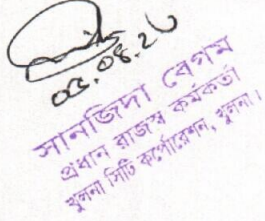 সানজিদা বেগম
প্রধান রাজস্ব কর্মকর্তা
খুলনা সিটি কর্পোরেশন, খুলনা।